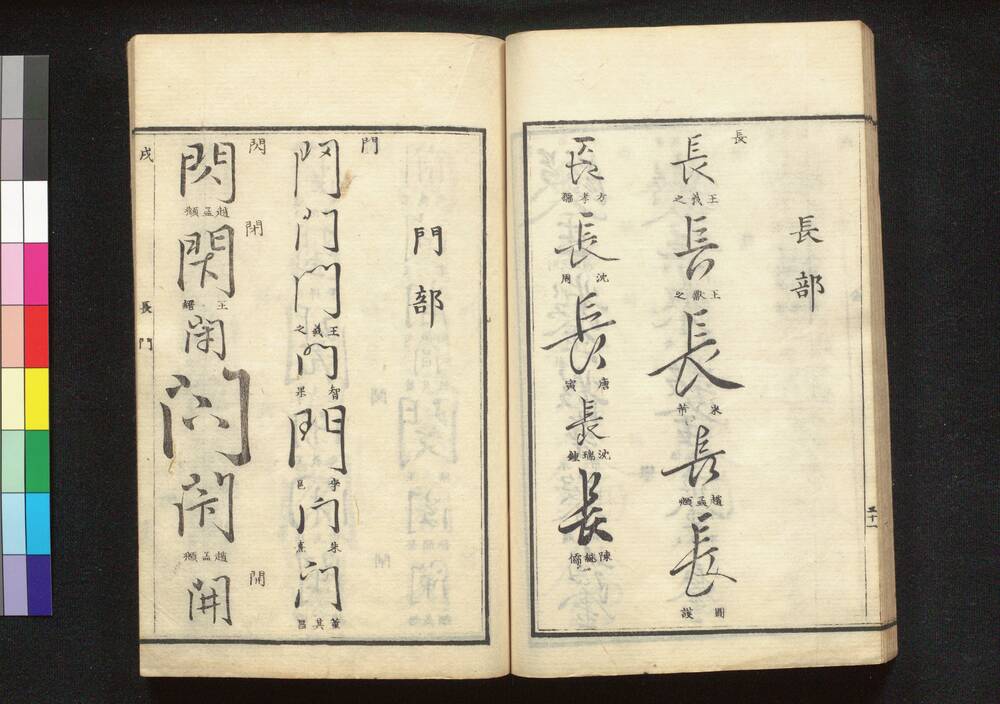 長部
長
長
王羲之
長
王獻之
長
長
趙孟頫
長
長
方孝孺
長
沈周
長
唐寅
長
長
五十一
門部
門
門
門
門
王羲之
門
智果
門
李邕
門
朱熹
門
董其昌
閃
閃
趙孟頫
閉
閃
王
閉
閉
閉
趙孟頫
開
開
戌
長門